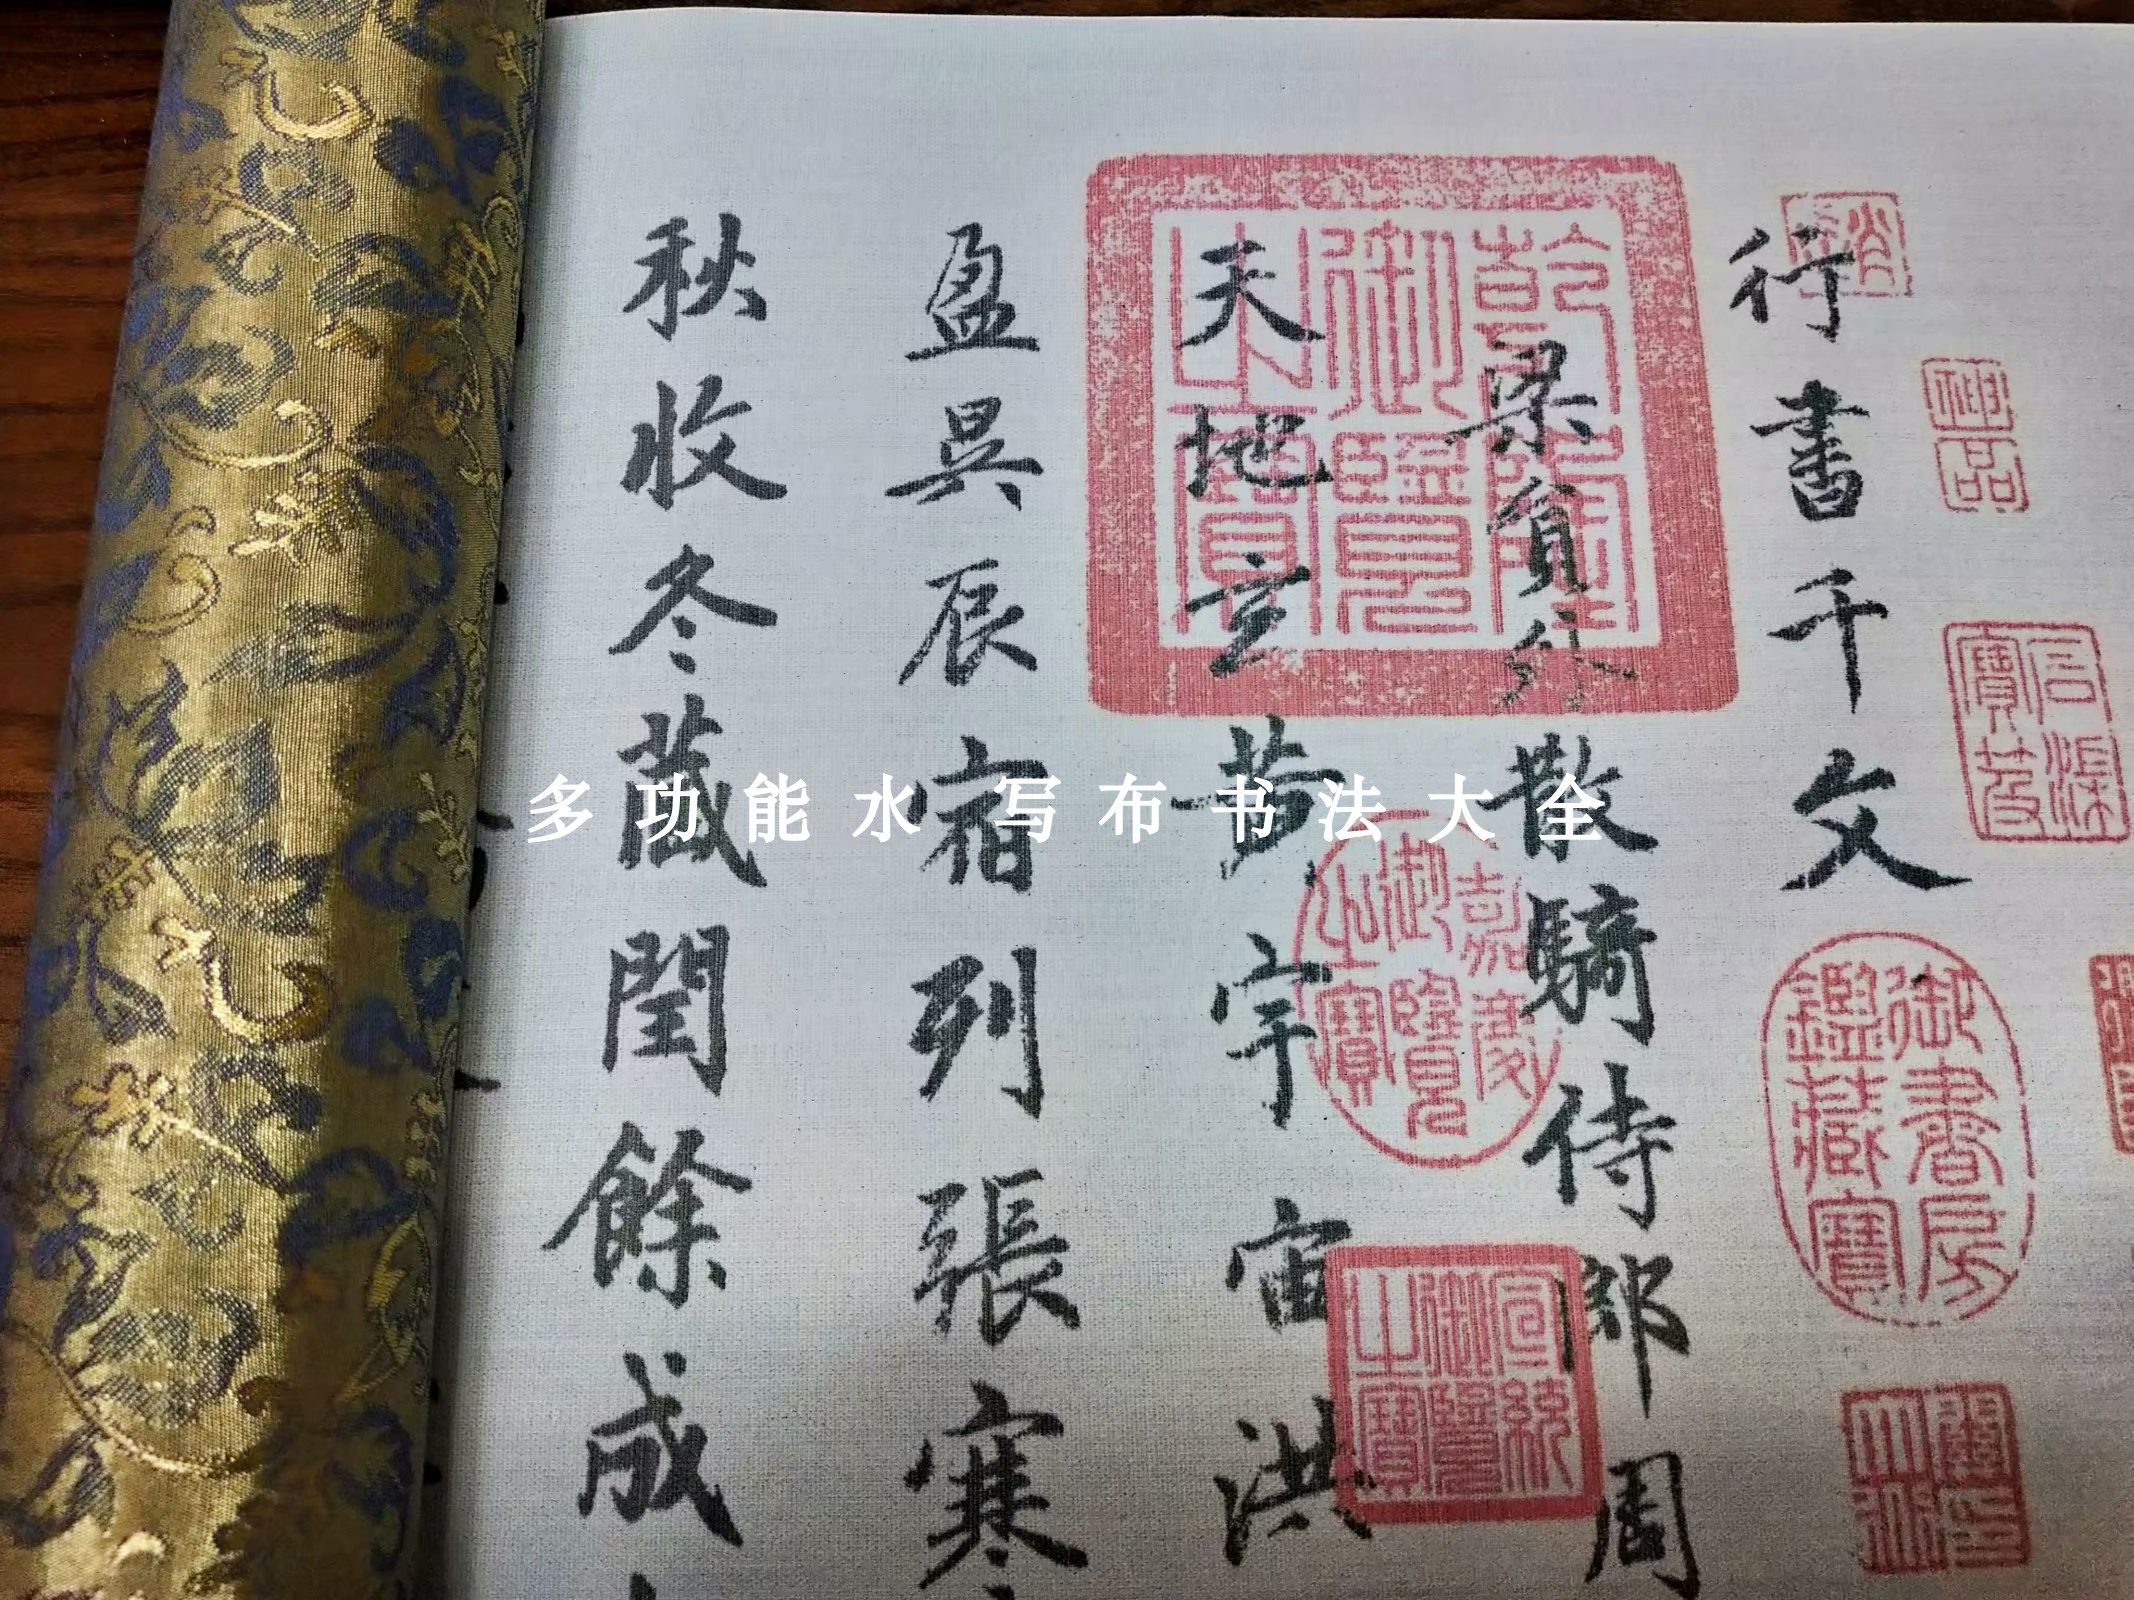 行書千文
梁員外散騎侍郎周
天地玄黃宇宙洪
盈昃辰宿列張寒
秋收冬藏閏餘成
多功能水写布书法大全
乾隆御覽之寶
嘉慶御覽之寶
宣統御覽之寶
神品
石渠寶笈
御書房鑑藏寶